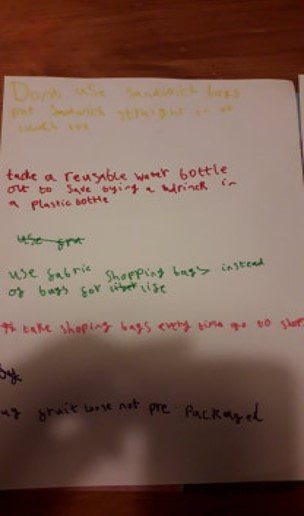 Dont use sandwich bags
put sandwich straight in
lunch box
take a reusable water bottle
out to save bying a drinck in
a plastic bottle
use
use fabric shopping bags instead
of bags for life
take shoping bags every time go to shop
fruit loose not pre packaged